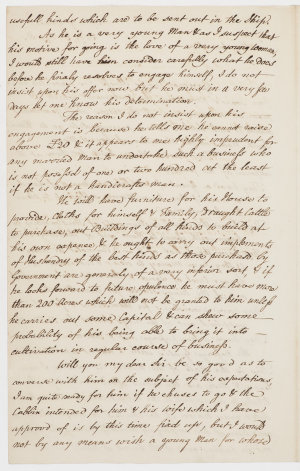 usefull kinds which are to be sent out in the Ship.
As he is a very young Man & as I suspect that
his motive for going is the love of a very young woman,
I would still have him consider carefully what he does
before he finaly resolves to engage himself, I do not
insist upon his offer now but he must in a very few
days let me know his determination.
The reason I do not insist upon his
engagement is because he tells me he cannot raise
above £20 & it appears to me highly imprudent for
any married Man to undertake such a business who
is not possesed of one or two hundred at the least
if he is not a handicrafts man.
He will have furniture for his House to
provide, Cloths for himself & Family, Draught Cattle
to purchase, out Buildings of all kinds to build at
his own expence, & he ought to carry out impliments
of Husbandry of the best kinds as those purchased by
Government are generaly of a very inferior sort & if
he looks forward to future opulence he must have more
than 200 Acres which will not be granted to him unless
he carries out some Capital & can shew some
probability of his being able to bring it into
cultivation in regular course of business.
Will you my dear Sir be so good as to
converse with him on the subject of his expectations,
I am quite ready for him if he chuses to go & the
Cabbin intended for him & his wife which I have
approved of is by this time fixed up, but I would
not by any means wish a young Man for whose